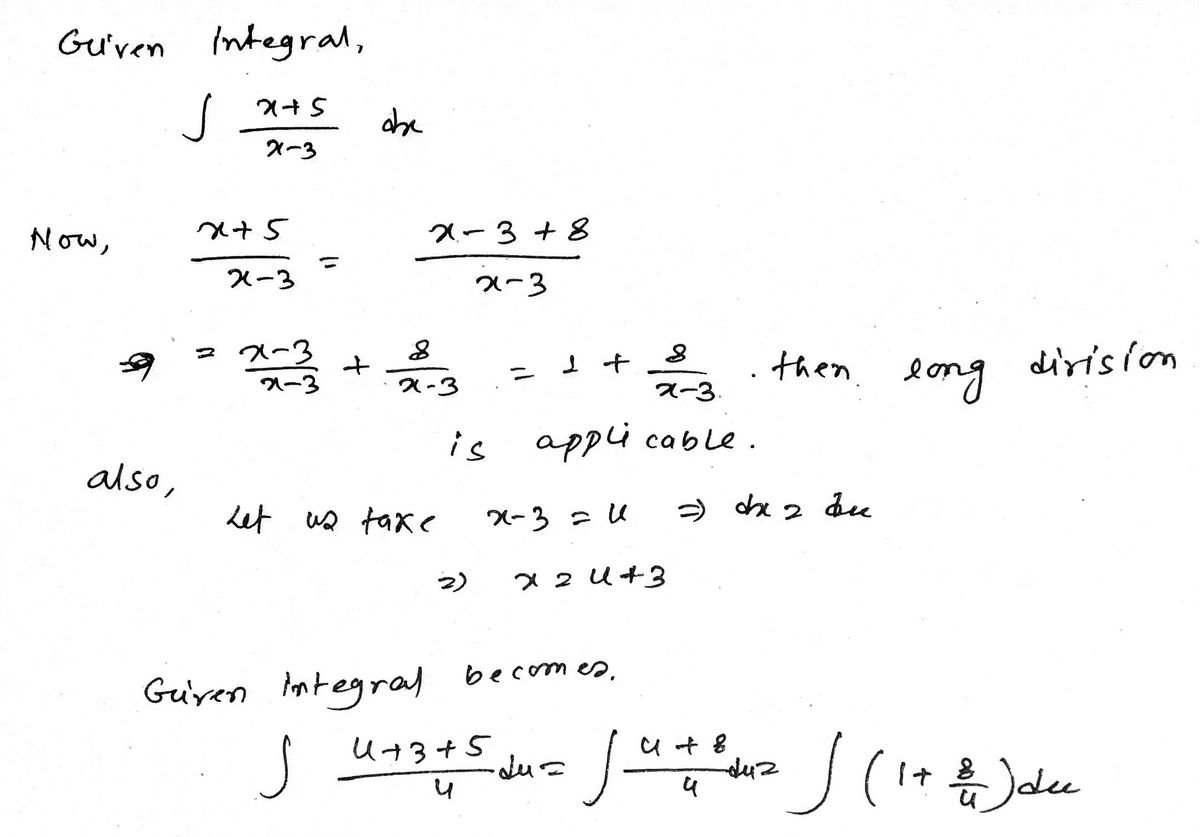 Given Integral,
∫ (x+5)/(x-3) dx
Now, (x+5)/(x-3) = (x-3+8)/(x-3)
= (x-3)/(x-3) + 8/(x-3) = 1 + 8/(x-3). then long division
is applicable.
also,
Let us take x-3 = u ⇒ dx = du
⇒ x = u+3
Given Integral becomes.
∫ (u+3+5)/u du = ∫ (u+8)/u du = ∫ (1+ 8/u) du